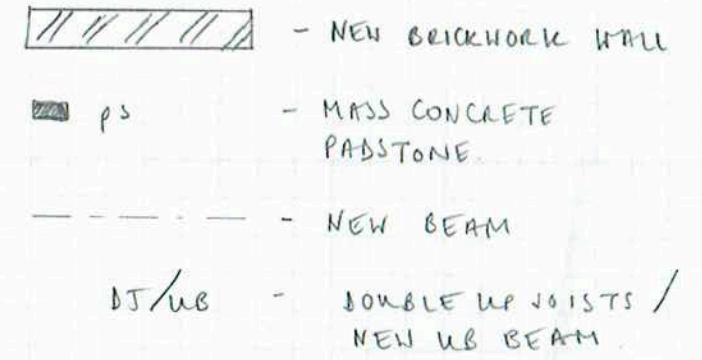 - NEW BRICKWORK WALL
ps - MASS CONCRETE
PADSTONE.
- NEW BEAM
DJ/UB - DOUBLE UP JOISTS /
NEW UB BEAM.